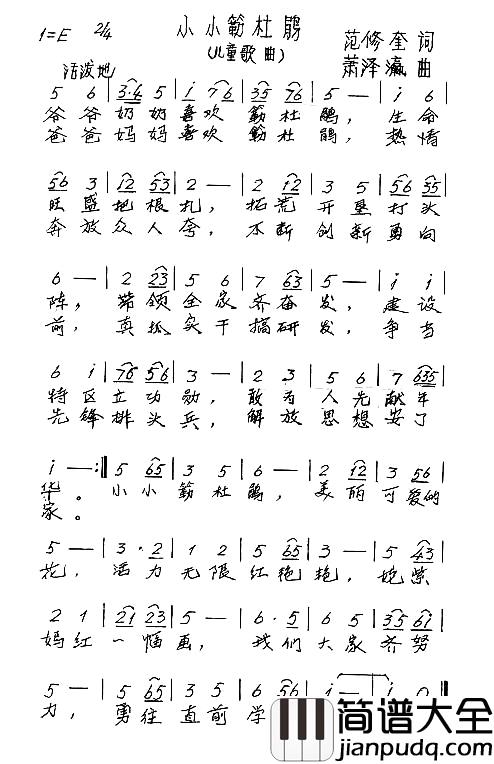 小小簕杜鹃
1=E 2/4
(儿童歌曲)
范修奎 词
活泼地
萧泽瀛 曲
5 6 | 3·4 5 | i 76 | 35 76 | 5 — | i 6 |
爷爷奶奶喜欢簕杜鹃，生命
爸爸妈妈喜欢簕杜鹃，热情
56 3 | 12 53 | 2 — | 2 12 | 3 5 | 56 35 |
旺盛把根扎，拓荒开垦打头
奔放众人夸，不断创新勇向
6 — | 2 23 | 5 6 | 7 63 | 5 — | i i |
阵，带领全家齐奋发，建设
前，真抓实干搞研发，争当
6 i | 76 56 | 3 — | 2 3 | 5 6 | 7 635 |
特区立功勋，敢为人先献年
先锋排头兵，解放思想安了
i — :‖ 5 65 | 3 5 | 6 — | 2 12 | 3 56 |
华。小小簕杜鹃，美丽可爱的
家。
5 — | 3·2 | 1 2 | 5 65 | 3 — | 5 43 |
花，活力无限红艳艳，姹紫
2 1 | 21 23 | 5 — | 6·5 | 6 5 | 35 61 |
嫣红一幅画，我们大家齐努
5 — | 5 65 | 3 5 | 6 56 | i — | i 0 ‖
力，勇往直前学
简谱大全
jianpudq.com